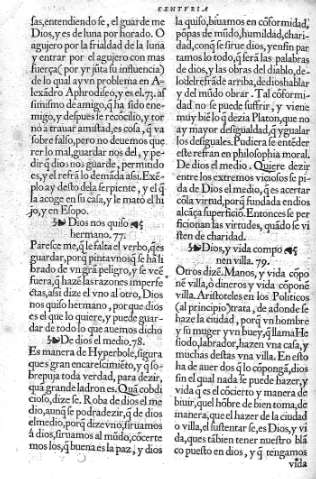 CENTVRIA
ſas,entendiendo ſe , el guarde me
Dios,y es de luna por horado. O
agujero por la frialdad de la luna
y entrar por el agujero con mas
fuerça( por yr jūta ſu influencia)
de lo qual ay vn problema en A-
lexādro Aphrodiſeo,y es el.73. aſ
ſiniſimo de amigo,q̄ ha ſido ene-
migo,y deſpues ſe recōcilio,y tor
no a trauar amiſtad,es coſa , q̄ va
ſobre falſo,pero no deuemos que
rer lo mal,guardar nos del , y pe-
dir q̄ dios nos guarde, permitido
es,y el refrā lo demāda aſsi.Exē-
plo ay deſto dela ſerpiente , y el q̄
la acoge en ſu caſa,y le mato el hi
jo,y en Eſopo.
Dios nos quiſo
hermano. 77.
Pareſce me,q̄ le falta el verbo,q̄es
guardar,porq̄ pintavnosq̄ ſe hā li
brado de vn grā peligro,y ſe vec̄
fuera,q̄ hazē las razones imperfe
ctas,aſsi dize el vno al otro, Dios
nos quiſo hermano , por que dios
es el que lo quiere,y puede guar-
dar de todo lo que auemos dicho
De dios el medio.78.
Es manera de Hyperbole,figura
ques gran encareſcimiēto,y q̄ ſo-
brepuja toda verdad, para dezir,
quā grande ladron es. Quā cobdi
cioſo,dize ſe. Roba de dios el me
dio,aunq̄ ſe podra dezir,q̄ de dios
el medio,porq̄ dize vno,ſiruamos
á dios,ſiruamos al mūdo,cōcerte
mos los,q̄ buena es la paz, y dios
la quiſo,biuamos en cōformidad,
pōpas de mūdo,humildad,chari-
dad,conq̄ ſe ſirue dios,yenfin par
tamos lo todo,q̄ ſerā las palabras
de dios,y las obras del diablo,de-
lo del refrā de arriba,de dios hablar
y del mūdo obrar . Tal cōformi-
dad no ſe puede ſuffrir , y viene
muy biē lo q̄ dezia Platon,que no
ay mayor deſigualdad,q̄ ygualar
los deſiguales.Pudiera ſe entēder
eſte refran en philoſophia moral.
De dios el medio . Quiere dezir
entre los extremos vicioſos ſe pi-
da de Dios el medio,q̄ es acertar
cōla virtud,porq̄ fundada en dios
alcāça ſuperficiō.Entonces ſe per
ficionan las virtudes, quādo ſe vi
ſten de charidad.
Dios,y vida compo
nen villa. 79.
Otros dizē. Manos, y vida cōpo
nē villa,ó dineros y vida cōponē
villa.Ariſtoteles en los Politicos
(al principio)trata , de adonde ſe
haze la ciudad , porq̄ vn hombre
y ſu muger y vn buey,q̄ llama He
ſiodo,labrador,hazen vna caſa, y
muchas deſtas vna villa. En eſto
ha de auer dos q̄ lo cōpongā,dios
ſin el qual nada ſe puede hazer,y
vida q̄ es el cōcierto y manera de
biuir,quel hōbre de bien toma,de
manera,que el hazer de la ciudad
o villa,el ſuſtentar ſe,es Dios,y vi
da,ques tābien tener nueſtro blā
co pueſto en dios , y q̄ tengamos
vida